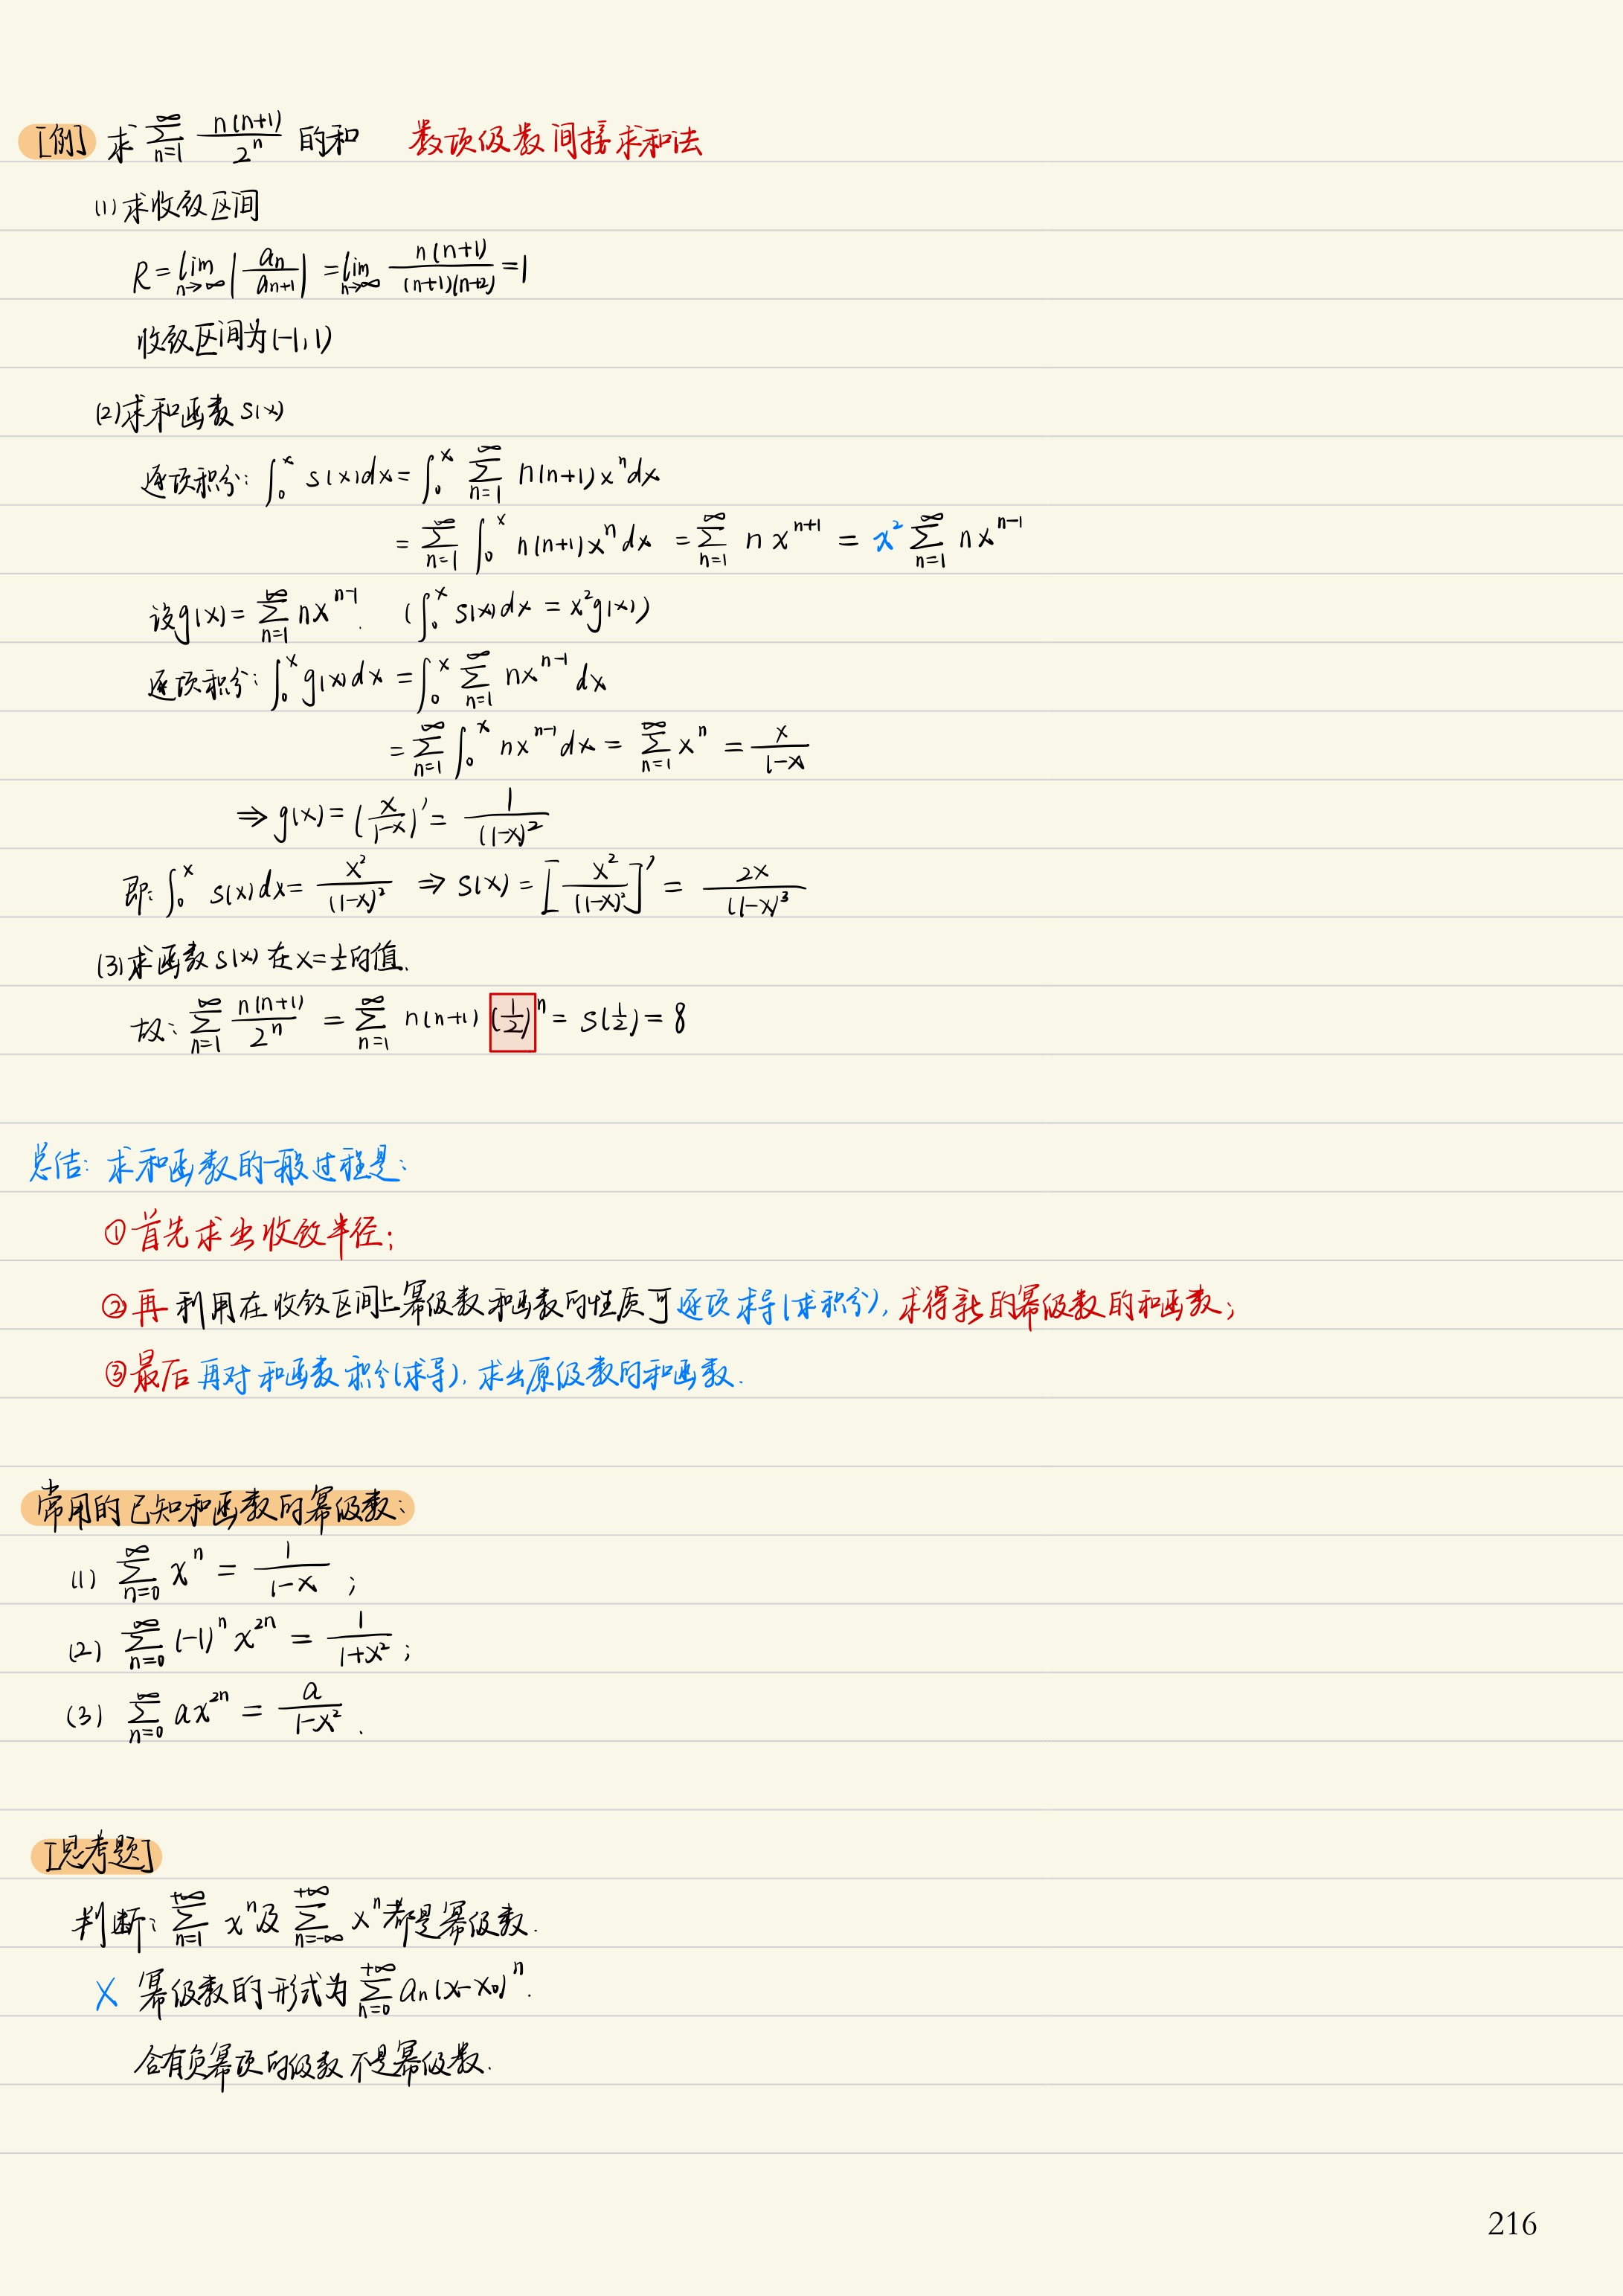 [例] 求 $\sum_{n=1}^{\infty} \frac{n(n+1)}{2^n}$ 的和 数项级数间接求和法
(1)求收敛区间
$R=\lim_{n\to\infty}\left|\frac{a_n}{a_{n+1}}\right|=\lim_{n\to\infty}\frac{n(n+1)}{(n+1)(n+2)}=1$
收敛区间为(-1,1)
(2)求和函数 S(x)
逐项积分: $\int_0^x s(x)dx=\int_0^x \sum_{n=1}^{\infty} n(n+1)x^n dx$
$=\sum_{n=1}^{\infty}\int_0^x n(n+1)x^n dx=\sum_{n=1}^{\infty} nx^{n+1}=x^2\sum_{n=1}^{\infty} nx^{n-1}$
设$g(x)=\sum_{n=1}^{\infty} nx^{n-1}$. ($\int_0^x s(x)dx=x^2g(x)$)
逐项积分: $\int_0^x g(x)dx=\int_0^x \sum_{n=1}^{\infty} nx^{n-1}dx$
$=\sum_{n=1}^{\infty}\int_0^x nx^{n-1}dx=\sum_{n=1}^{\infty} x^n=\frac{x}{1-x}$
$\Rightarrow g(x)=(\frac{x}{1-x})'=\frac{1}{(1-x)^2}$
即: $\int_0^x s(x)dx=\frac{x^2}{(1-x)^2} \Rightarrow s(x)=\left[\frac{x^2}{(1-x)^2}\right]'=\frac{2x}{(1-x)^3}$
(3)求函数 S(x) 在 $x=\frac{1}{2}$的值.
故: $\sum_{n=1}^{\infty}\frac{n(n+1)}{2^n}=\sum_{n=1}^{\infty} n(n+1)(\frac{1}{2})^n=s(\frac{1}{2})=8$
总结: 求和函数的一般过程是:
①首先求出收敛半径;
②再利用在收敛区间上幂级数和函数的性质可逐项求导(求积分),求得新的幂级数的和函数;
③最后再对和函数积分(求导),求出原级数的和函数.
常用的已知和函数的幂级数:
(1) $\sum_{n=0}^{\infty} x^n=\frac{1}{1-x}$ ;
(2) $\sum_{n=0}^{\infty} (-1)^n x^{2n}=\frac{1}{1+x^2}$ ;
(3) $\sum_{n=0}^{\infty} ax^{2n}=\frac{a}{1-x^2}$ .
[思考题]
判断: $\sum_{n=1}^{+\infty} x^n$及$\sum_{n=-\infty}^{+\infty} x^n$都是幂级数.
X 幂级数的形式为$\sum_{n=0}^{+\infty} a_n(x-x_0)^n$.
含有负幂项的级数不是幂级数.
216